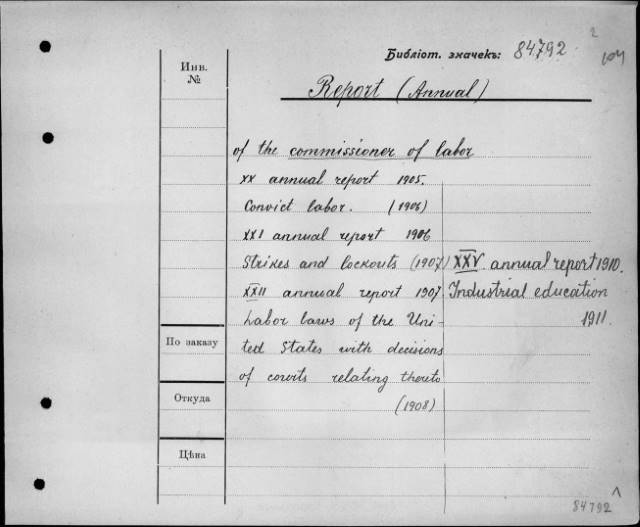 2
Библіот. значекъ: 84792
104
Инв.
№
Report (Annual)
of the commissioner of labor
XX annual report 1905.
Convict labor. (1906)
XXI annual report 1906
Strikes and lockouts (1907)
XXII annual report 1907
Labor laws of the Uni-
ted States with decisions
of courts relating thereto
(1908)
XXV. annual report 1910.
Industrial education
1911.
По заказу
Откуда
Цѣна
84792